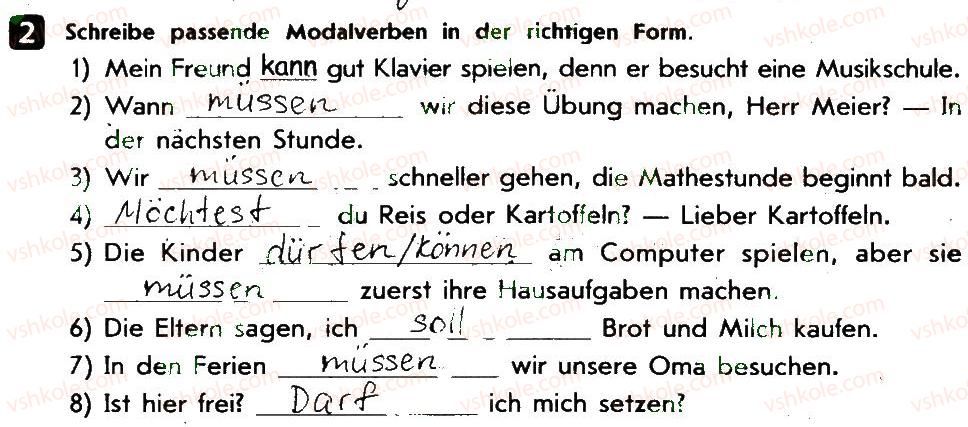 2 Schreibe passende Modalverben in der richtigen Form.
1) Mein Freund kann gut Klavier spielen, denn er besucht eine Musikschule.
2) Wann müssen wir diese Übung machen, Herr Meier? — In
der nächsten Stunde.
3) Wir müssen schneller gehen, die Mathestunde beginnt bald.
4) Möchtest du Reis oder Kartoffeln? — Lieber Kartoffeln.
5) Die Kinder dürfen/können am Computer spielen, aber sie
müssen zuerst ihre Hausaufgaben machen.
6) Die Eltern sagen, ich soll Brot und Milch kaufen.
7) In den Ferien müssen wir unsere Oma besuchen.
8) Ist hier frei? Darf ich mich setzen?